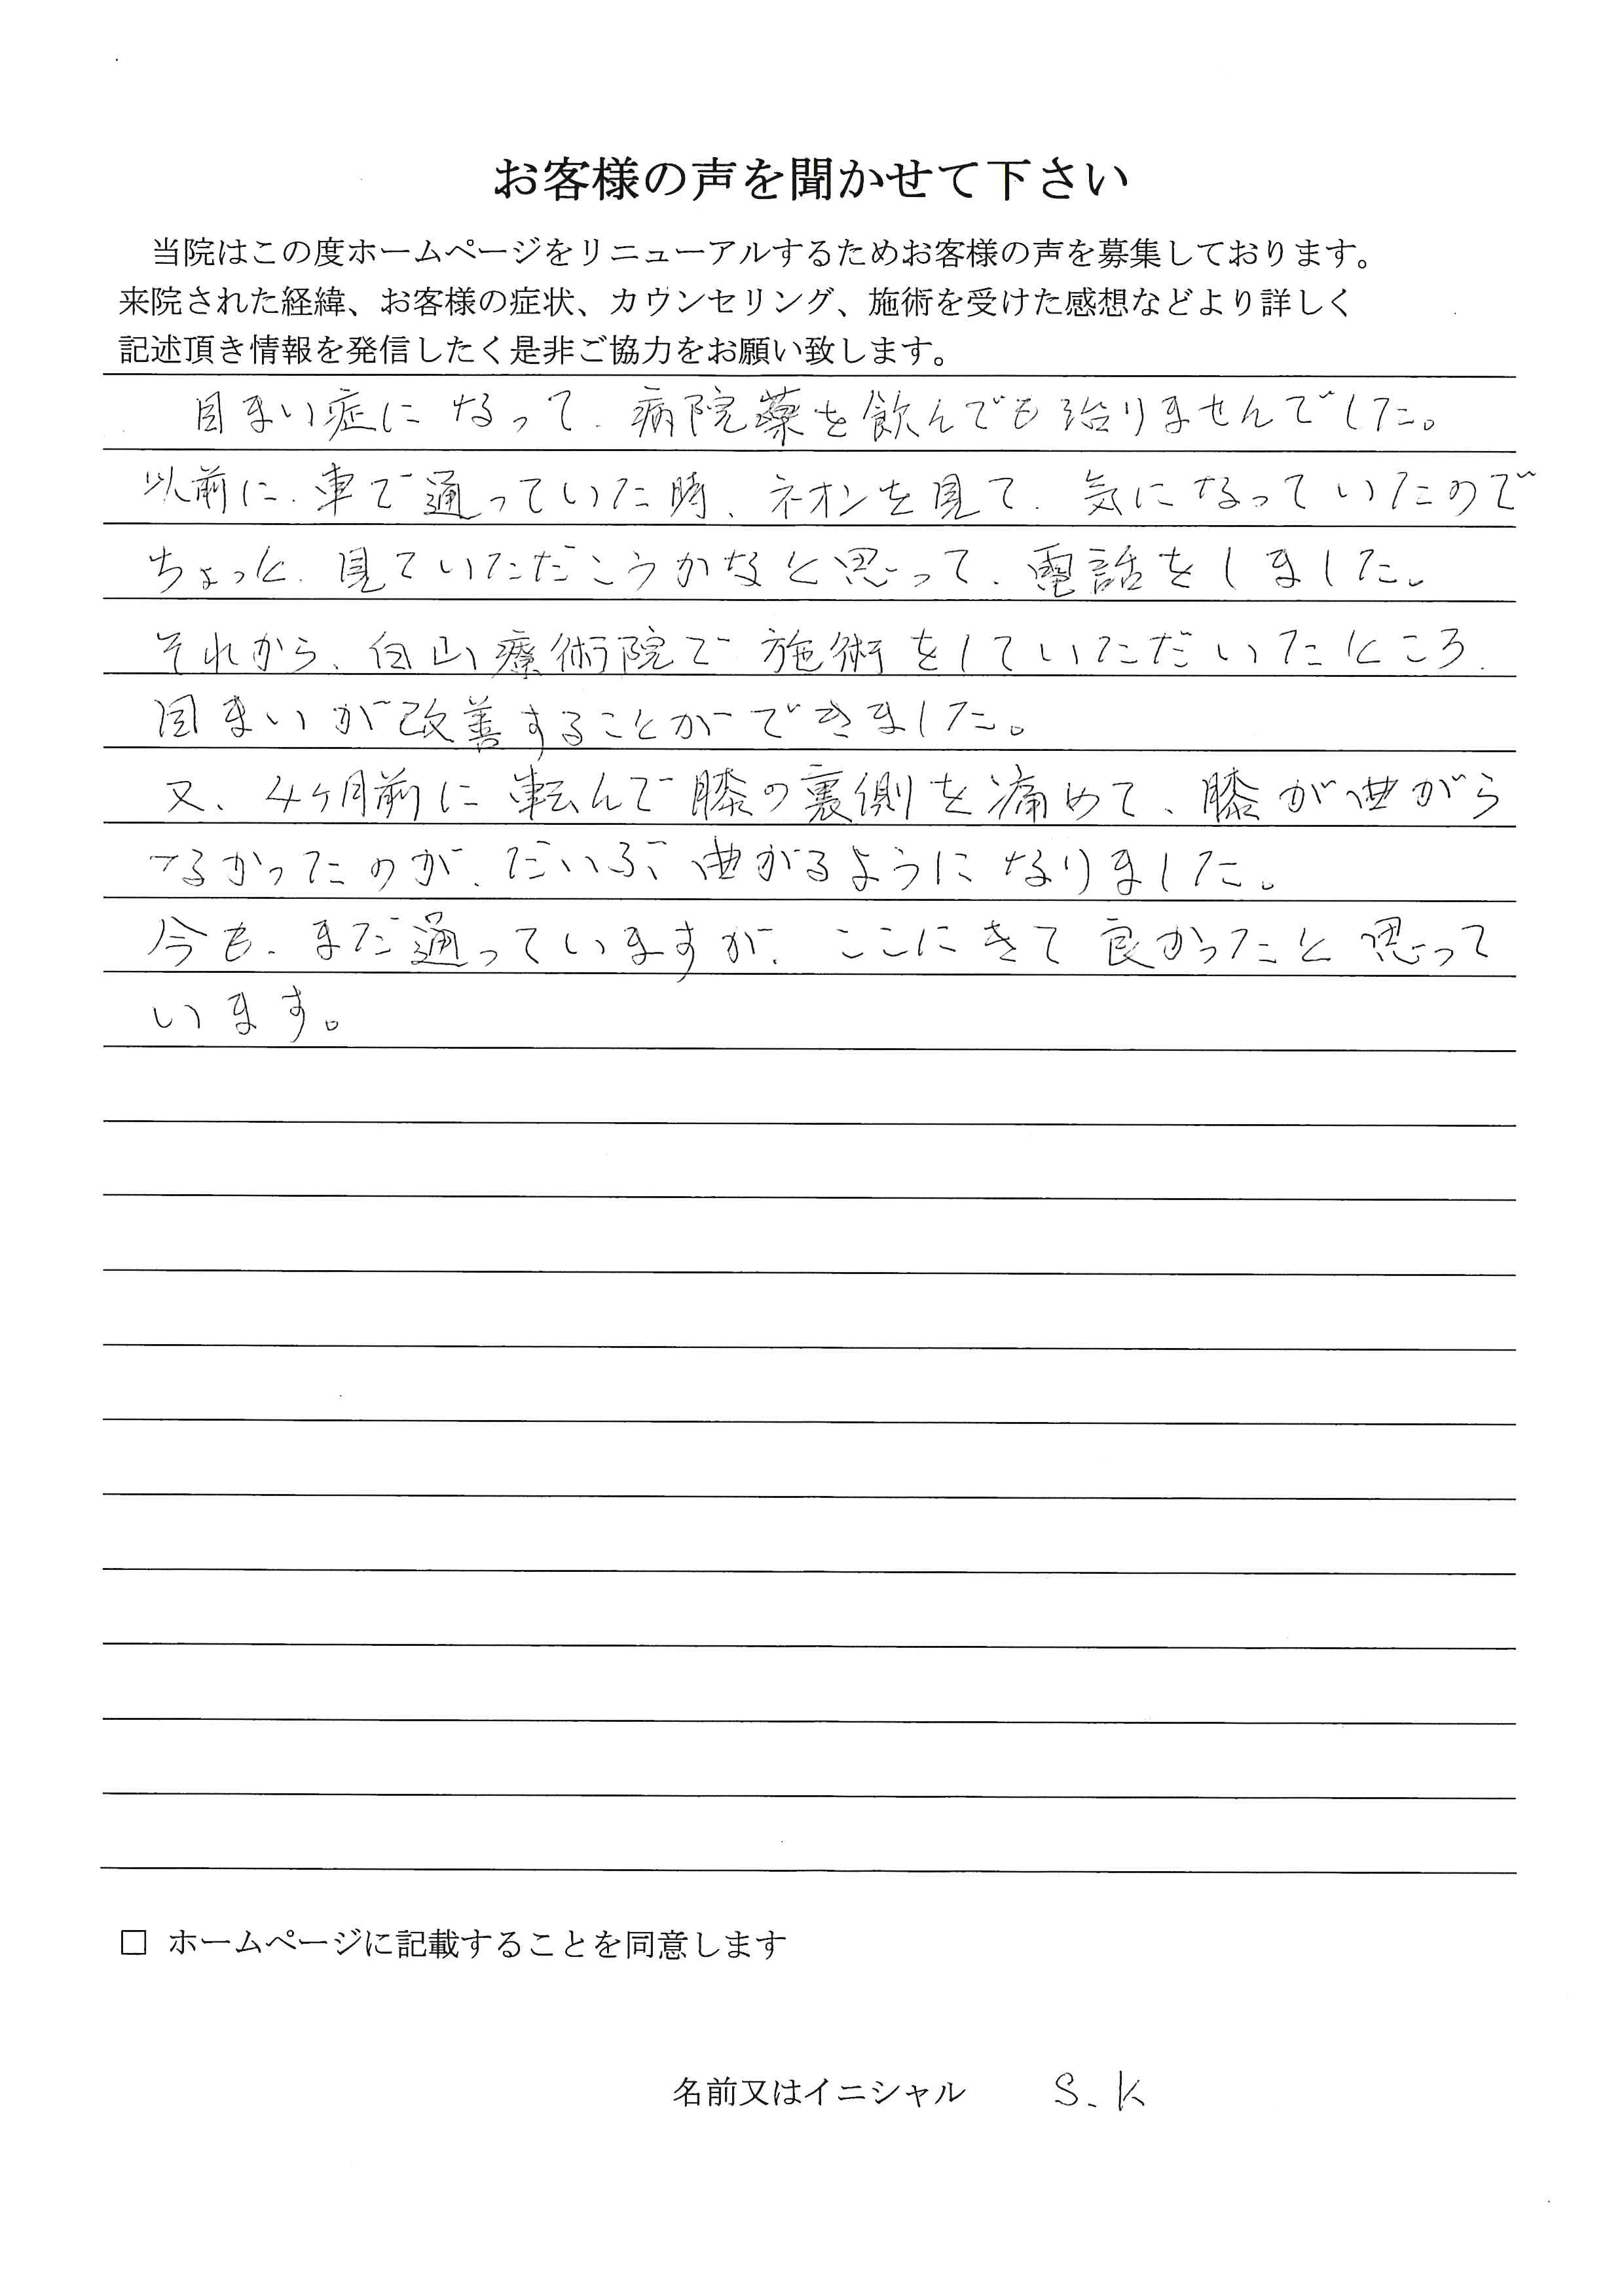 お客様の声を聞かせて下さい
当院はこの度ホームページをリニューアルするためお客様の声を募集しております。
来院された経緯、お客様の症状、カウンセリング、施術を受けた感想などより詳しく
記述頂き情報を発信したく是非ご協力をお願い致します。
目まい症になって、病院薬を飲んでも治りませんでした。
以前に、車で通っていた時、ネオンを見て、気になっていたので
ちょっと、見ていただこうかなと思って、電話をしました。
それから、白山療術院で施術をしていただいたところ、
目まいが改善することができました。
又、4ヶ月前に転んで膝の裏側を痛めて、膝が曲がら
なかったのが、だいぶ曲がるようになりました。
今も、まだ通っていますが、ここにきて良かったと思って
います。
□ ホームページに記載することを同意します
名前又はイニシャル S.K